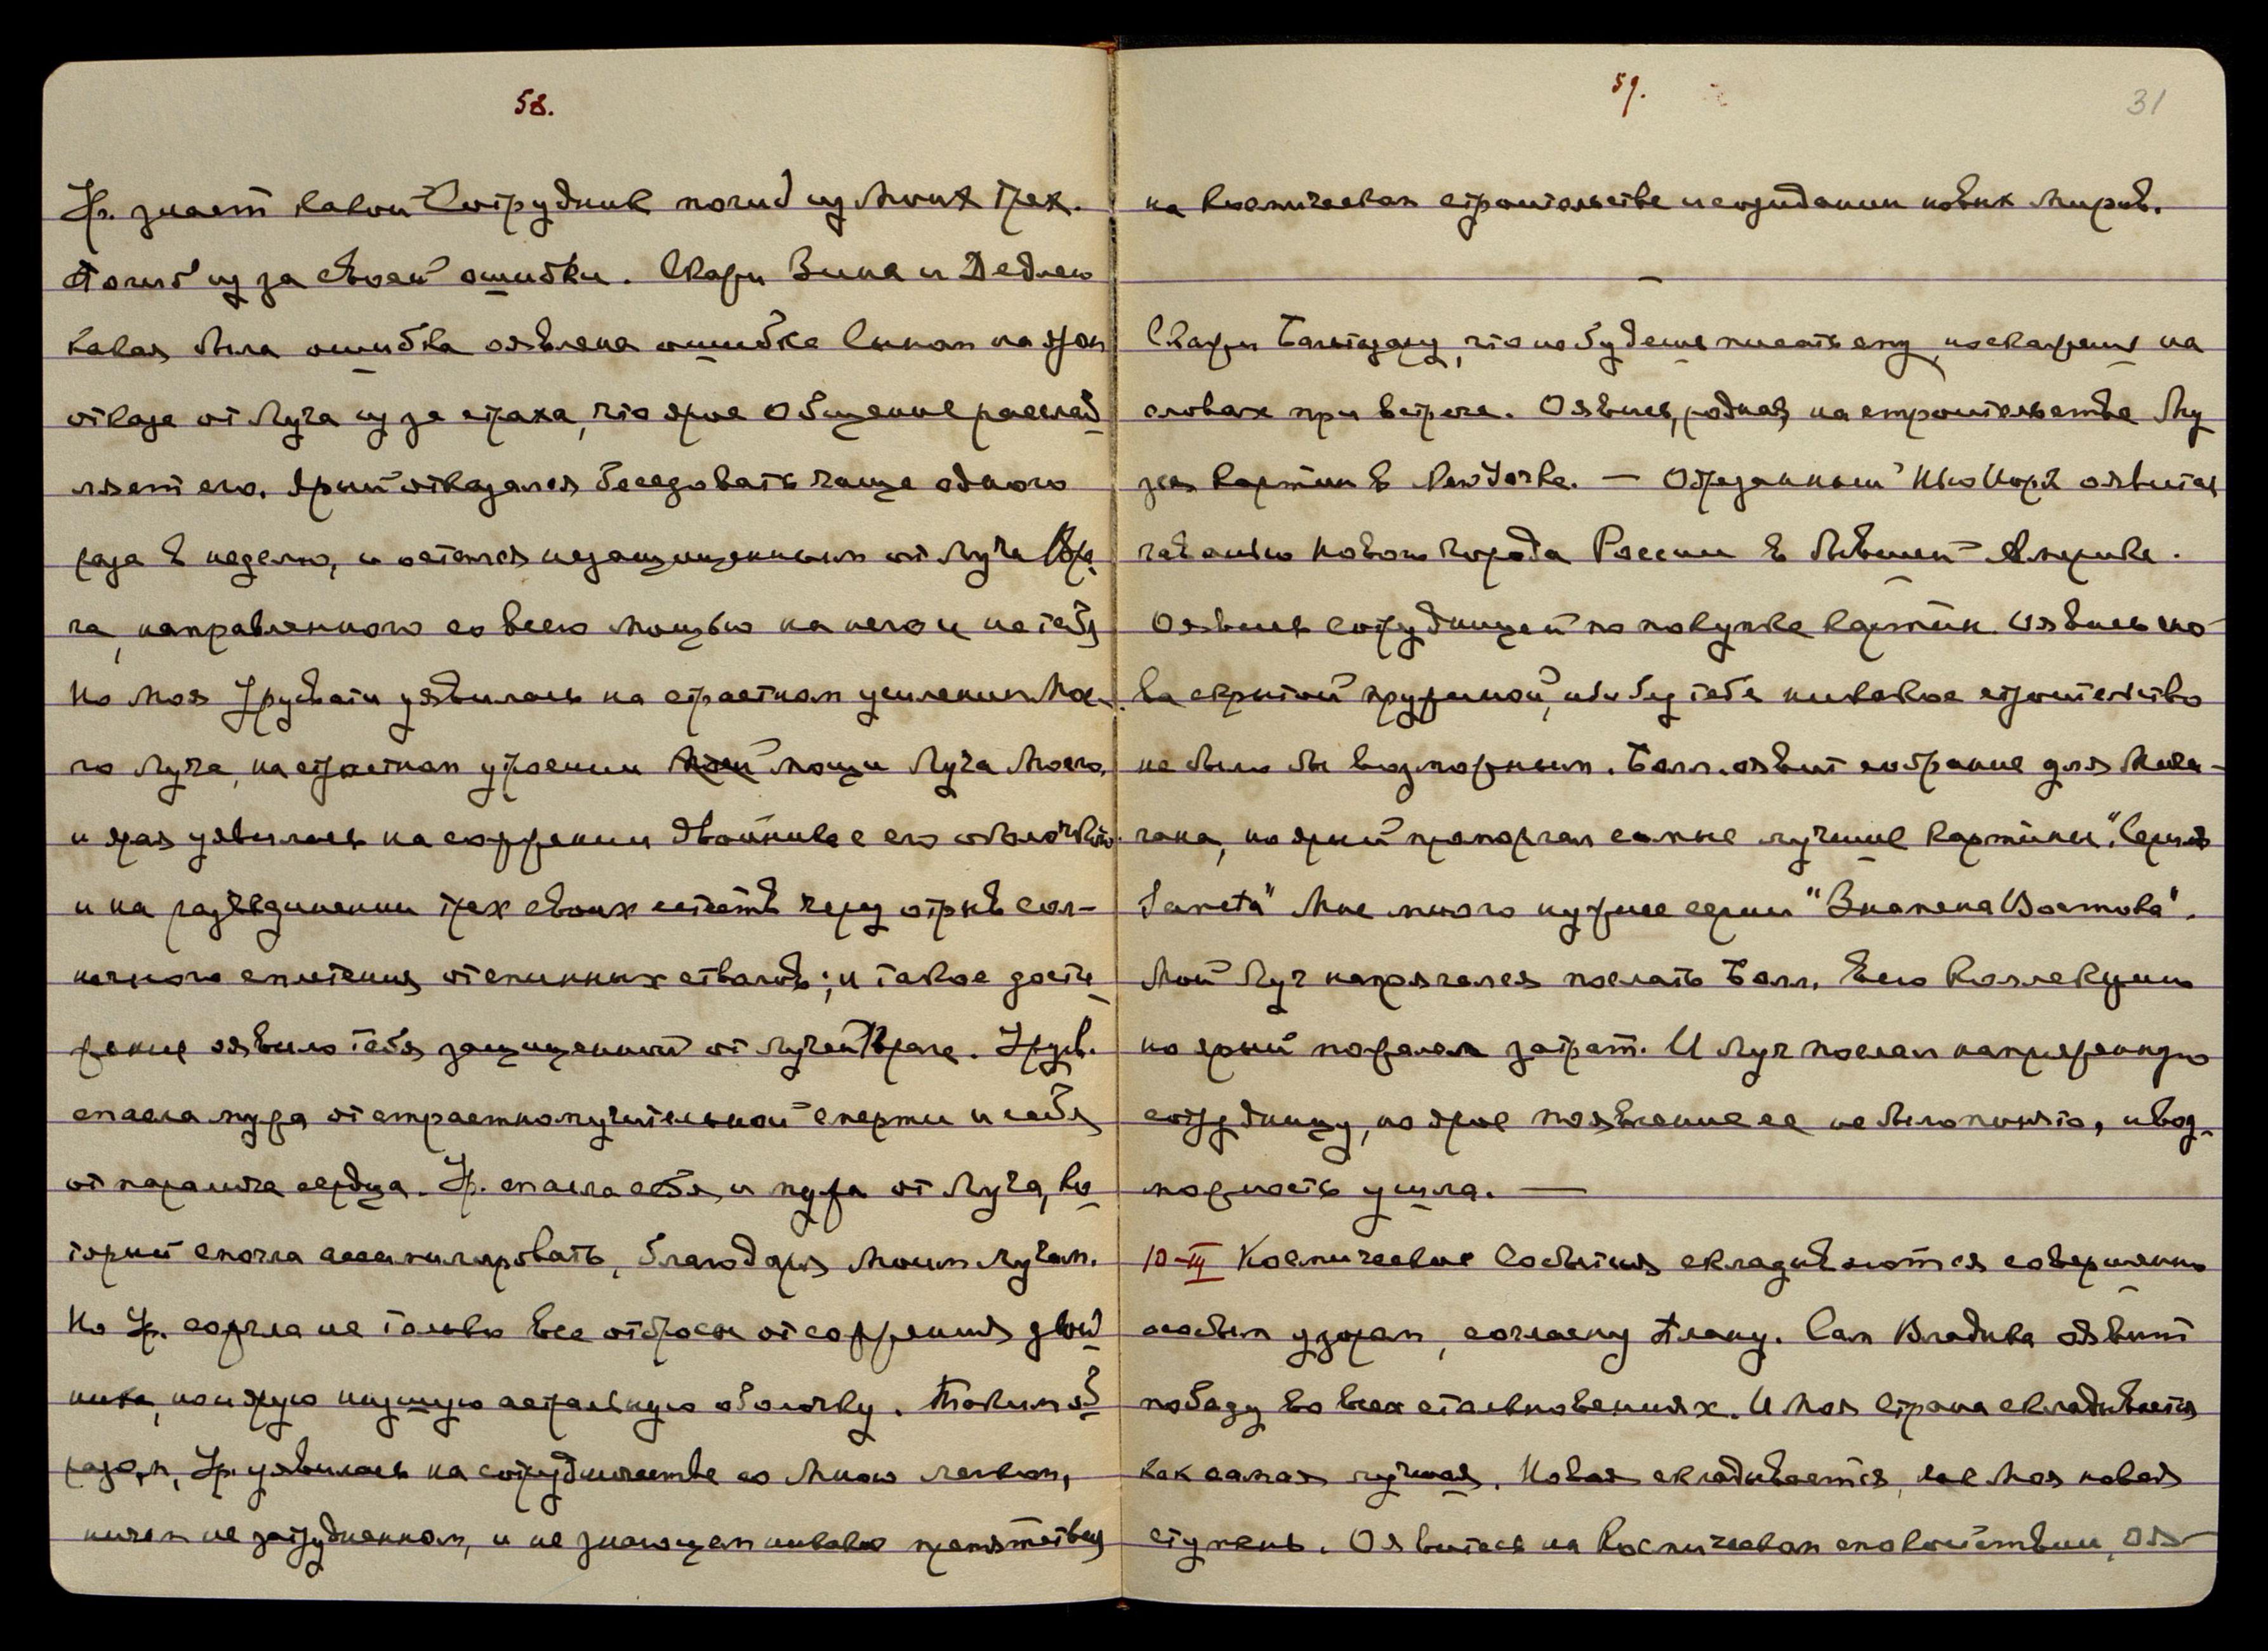 58.
Ур. знает какой Сотрудник погиб из Моих трех.
Погиб из за своей ошибки. Скажи Зина и Дедлею
какая была ошибка оявлена ошибка Сыном на яром
отказе от Луча из за страха, что ярое Общение расслаб
ляет его. Ярый отказался беседовать чаще одного
раза в неделю, и остался незащищенным от Луча Вра
га, направленного со всею мощью на него и на тебя
Но моя Урусвати уявилась на страстном усилении Мое-
го Луча, на страстном утроении мощи Луча Моего,
и ярая уявилась на сожжении двойника с его оболочкою
и на разъединении трех своих естеств через отрыв сол-
нечного сплетения от спинных стволов; и такое дости
жение оявило тебя защищенной от лучей Врага. Урусв.
спасла мужа от страстномучительной смерти и себя
от паралича сердца. Ур. спасла себя и мужа от Луча, ко
торый смогла ассимилировать, благодаря Моим Лучам.
Но Ур. сожгла не только все отбросы от сожжения двой
ника, но и ярую низшую астральную оболочку. Таким об
разом, Ур. уявилась на сотрудничестве со Мною легком,
ничем не затрудненном, и не знающем никаких препятствий
59.
31
на космическом строительстве и созидании новых Миров.
—
Скажи Бальтазару, что не будешь писать ему, но скажешь на
словах при встрече. Оявись, родная, на строительстве Му
зея картин в New Yorke. — Отрезанный Нью Йорк оявится
частью нового города России в бывшей Америке.
Оявись сотрудницей по покупке картин. Оявись сно
ва скрытой пружиной, ибо без тебя никакое строительство
не было бы возможным. Балт. оявит собрание для Мича-
гана, но ярый проморгал самые лучшие картины. "Серия
Sancta" Мне много нужнее серии "Знамена Востока".
Мой Луч напрягался послать Балт. всю коллекцию
но ярый пожалел затрат. И Луч послал напряженную
сотрудницу, но ярое появление ее не было понято, и воз-
можность ушла. —
10-III Космические События складываются совершенно
особым узором, согласну Плану. Сам Владыка оявит
победу во всех столкновениях. И Моя Страна складывается
как самая лучшая. Новая складывается, как Моя новая
ступень. Оявитесь на Космическом спокойствии, оя-